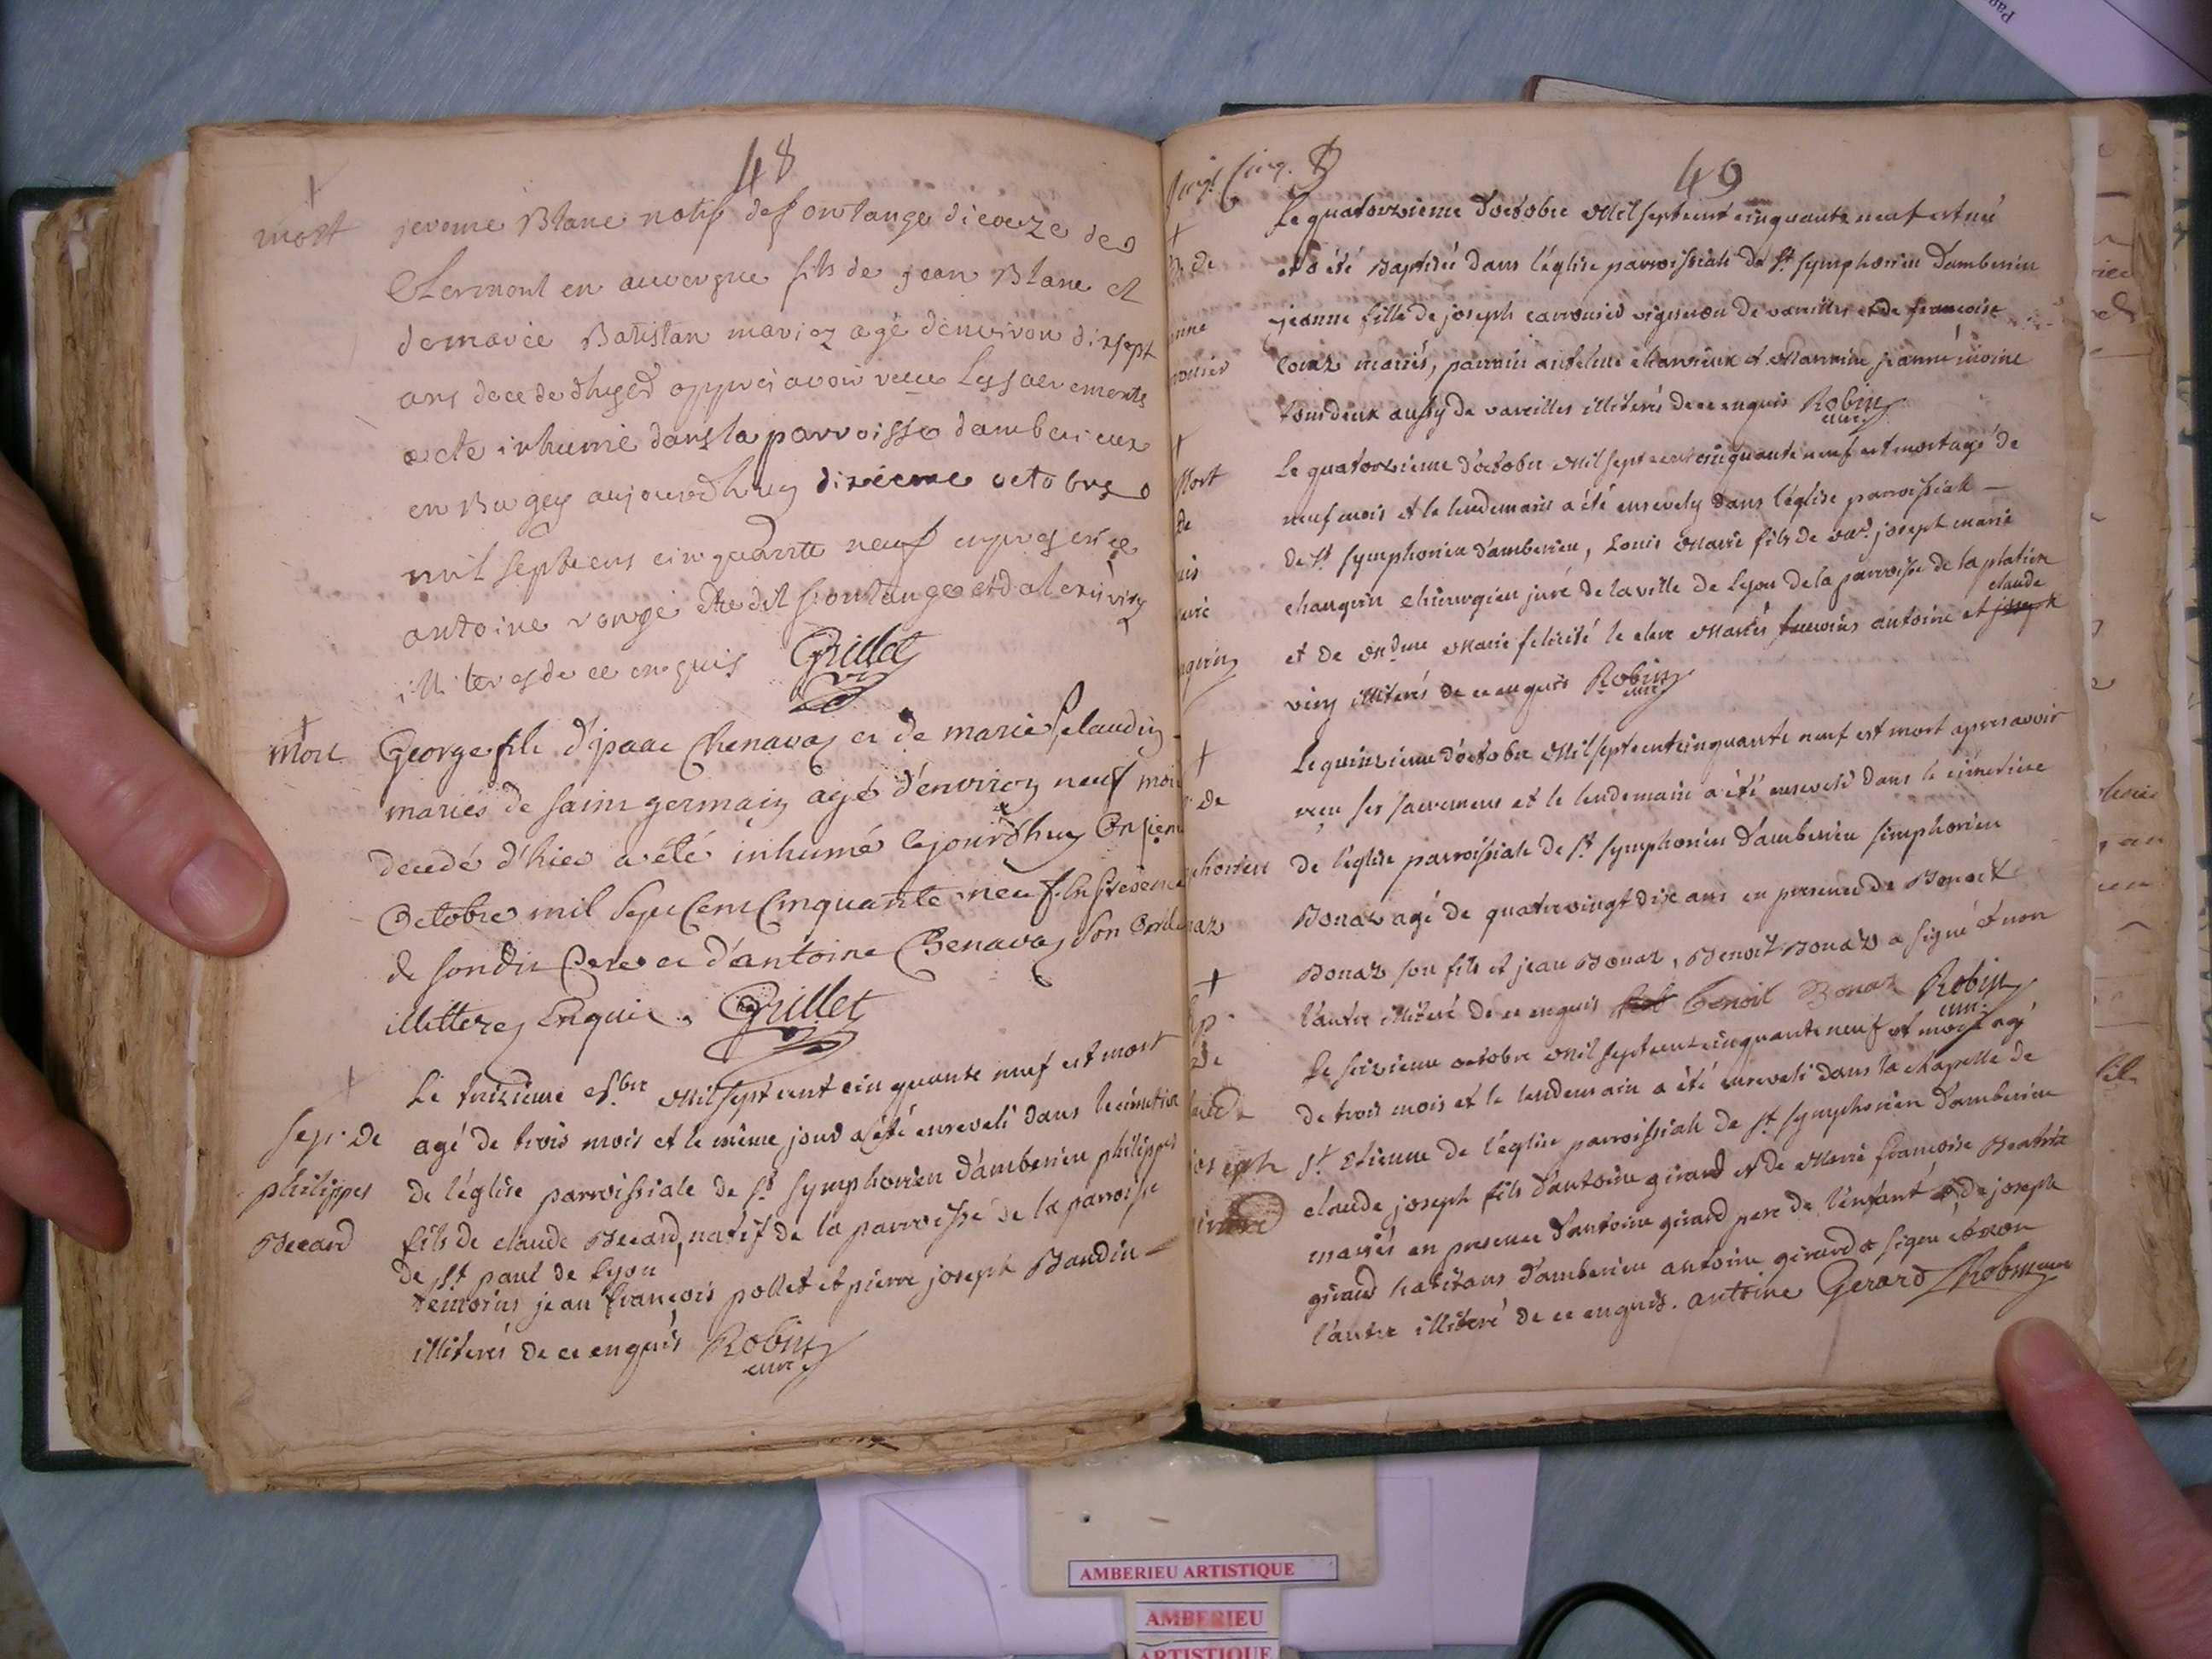 48
mort
jerome Blanc natif de fontange dioceze de
Clermont en auvergne fils de jean Blanc et
de marie Batistan mariez agé denviron dixsept
ans decede d'hyer appres avoir receu les sacrements
a ete inhumé dans la parroisse damberieux
en Bugey aujourdhuy dixieme octobre
mil septcens cinquante neuf en presence
antoine rongé de dit fontange et d
illiteres de ce enquis Grillet
mort
George fils d'isaac Chenavas et de marie
mariés de saint germain agé d'environ neuf mois
decedé d'hier a été inhumé cejourdhuy Onsieme
Octobre mil sept Cent Cinquante neuf En presence
de sondit Pere et d'antoine Chenavas son
illitteres Enquis. Grillet
sep. de
philippes
Becard
Le treizieme 8.bre Mil sept cent cinquante neuf est mort
agé de trois mois et le même jour a été enseveli dans le cimetiere
de l'église parroissiale de St symphorien d'amberieu philippes
fils de claude Becard, natif de la parroisse de la paroisse
de St paul de Lyon
temoins jean françois pollet et pierre joseph Baudin
illiterés de ce enquis Robin
curé
49
Le quatorzieme d'octobre Mil sept cent cinquante neuf est née
et a été Baptisée dans l'église parroissiale de St symphorien d'amberieu
jeanne fille de joseph carronier vigneron de vareilles et de françoise
marriés, parrain antelme charvieux et Marraine jeanne moine
tous deux aussy de vareilles illiterés de ce enquis Robin
curé
Mort
de
Le quatorzieme d'octobre Mil sept cent cinquante neuf est mort agé de
neuf mois et le lendemain a été ensevely dans l'église parroissiale
de St symphorien d'amberieu, Louis Marie fils de joseph marie
chaugrin chirurgien juré de la ville de Lyon de la parroisse de la platiere
claude
et de Marie felicité le clerc Mariés temoins antoine et joseph
viry illiterés de ce enquis Robin
curé
de
Le quinzieme d'octobre Mil sept cent cinquante neuf est mort apres avoir
reçu ses sacremens et le lendemain a été enseveli dans le cimetiere
de l'église parroissiale de St symphorien d'amberieu simphorien
Bonaz agé de quatrevingt dix ans en presence de Benoit
Bonaz son fils et jean Bonaz, Benoit Bonaz a signé et non
l'autre illiteré de ce enquis benoit Bonaz Robin
curé
de
joseph
Le seizieme octobre Mil sept cent cinquante neuf est mort agé
de trois mois et le lendemain a été enseveli dans la chapelle de
St Etienne de l'église parroissiale de St symphorien d'amberieu
claude joseph fils d'antoine girard et de Marie françoise Beatrix
mariés en presence d'antoine girard pere de l'enfant et de joseph
girard habitans d'amberieu antoine girard a signé et non
l'autre illiteré de ce enquis. antoine Gerard Robin curé
AMBERIEU ARTISTIQUE
AMBERIEU
ARTISTIQUE